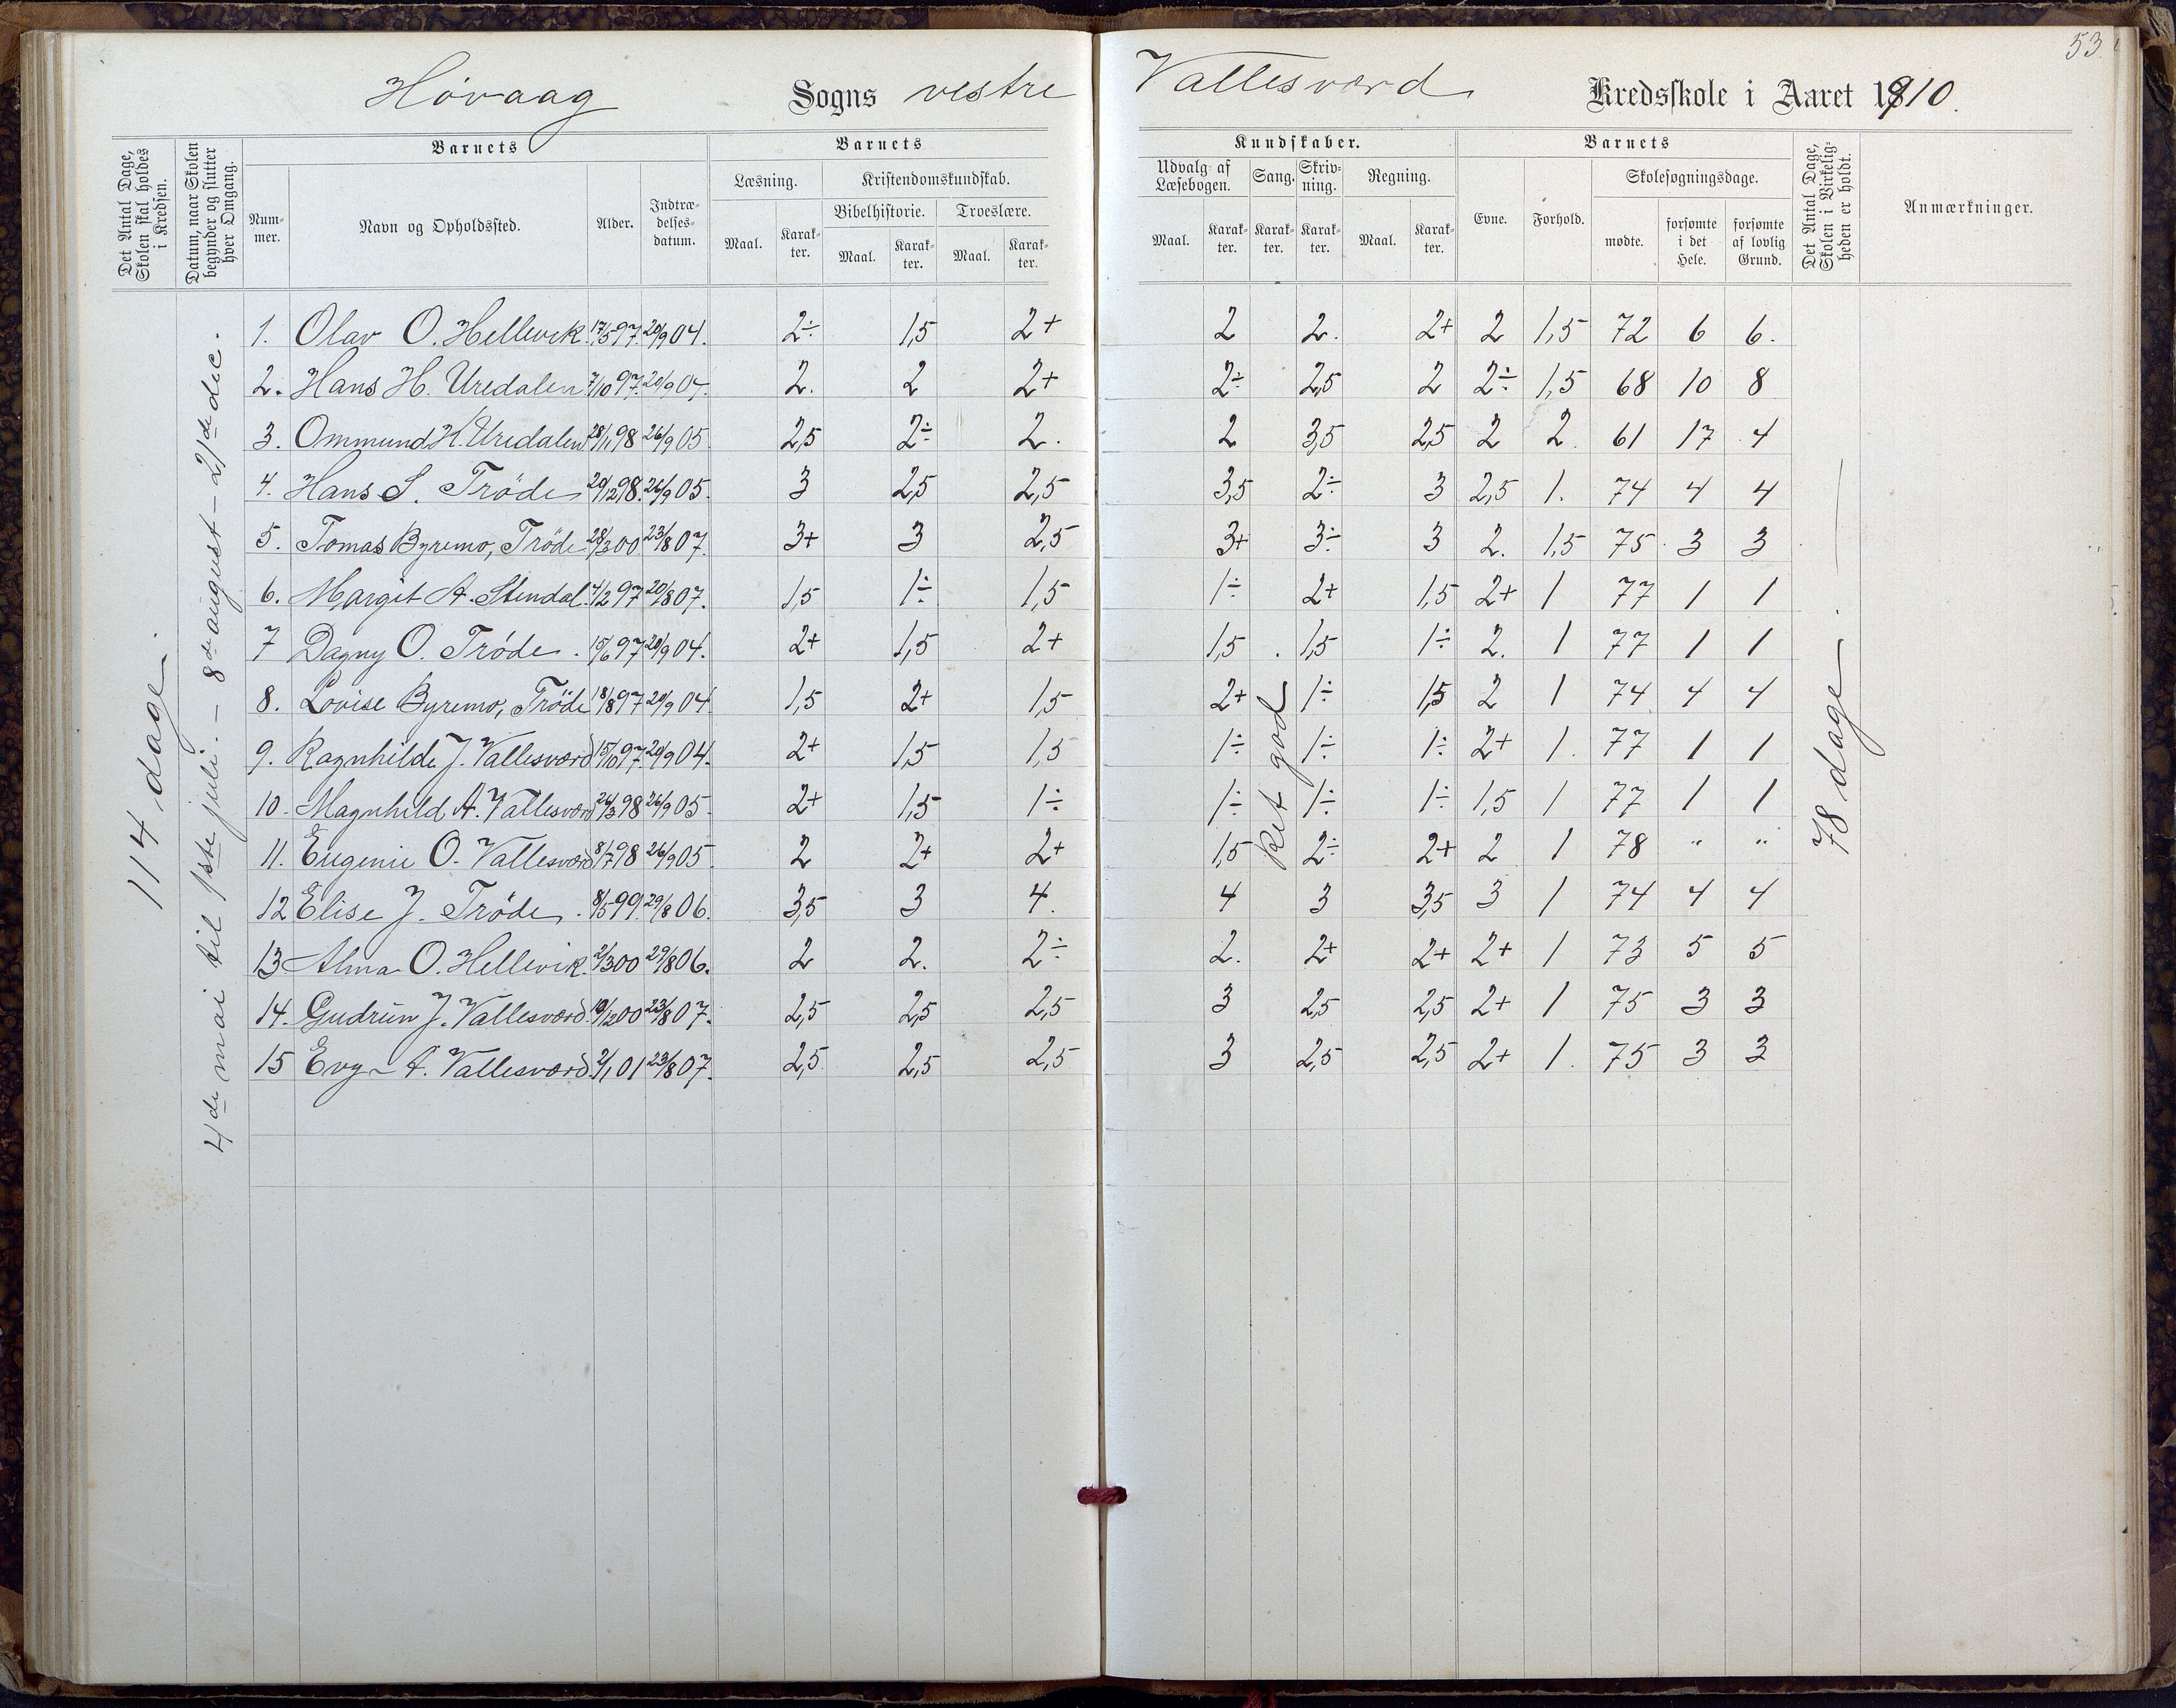 53
Høvaag Sogns vestre Vallesværd Kredsskole i Aaret 1910.
Det Antal Dage, Skolen skal holdes i Kredsen.
Datum, naar Skolen begynder og slutter hver Omgang.
Barnets
Nummer.
Navn og Opholdssted.
Alder.
Indtrædelsesdatum.
Barnets
Læsning.
Kristendomskundskab.
Bibelhistorie. Troeslære.
Maal. Karakter. Maal. Karakter. Maal. Karakter.
Kundskaber.
Udvalg af Læsebogen. Sang. Skrivning. Regning.
Maal. Karakter. Karakter. Karakter. Maal. Karakter.
Barnets
Evne. Forhold. Skolesøgningsdage.
mødte. forsømte i det Hele. forsømte af lovlig Grund.
Det Antal Dage, Skolen i Virkeligheden er holdt.
Anmærkninger.
114 dage.
4de mai til 1ste juli. – 8de august – 21de dec.
1. Olav O. Hellevik. 17/5 97. 20/9 04. 2÷ 1,5 2+ 2 2. 2+ 2 1,5 72 6 6.
2. Hans H. Uredalen 7/10 97. 20/9 04. 2. 2 2+ 2÷ 2,5 2 2÷ 1,5 68 10 8
3. Ommund H. Uredalen 28/11 98 26/9 05. 2,5 2÷ 2. 2 3,5 2,5 2 2. 61 17 4
4. Hans S. Trøde 20/12 98. 26/9 05. 3 2,5 2,5 3,5 2÷ 3 2,5 1. 74 4 4
5. Tomas Byremo, Trøde 28/3 00 23/8 07. 3+ 3 2,5 3+ 3÷ 3 2. 1,5 75 3 3
6. Margit A. Stendal. 4/2 97 20/8 07. 1,5 1÷ 1,5 1÷ 2+ 1,5 2+ 1 77 1 1
7 Dagny O. Trøde. 15/6 97 20/9 04. 2+ 1,5 2+ 1,5 1,5 1÷ 2. 1 77 1 1
8. Lovise Byremo, Trøde 18/8 97 20/9 04. 1,5 2+ 1,5 2+ 1÷ 1,5 2 1 74 4 4
9. Ragnhilde J. Vallesværd 15/10 97. 20/9 04. 2+ 1,5 1,5 1÷ 1÷ 1÷ 2+ 1. 77 1 1
10. Magnhild A. Vallesværd 26/3 98 26/9 05. 2+ 1,5 1÷ 1÷ 1÷ 1÷ 1,5 1 77 1 1
11. Eugenie O. Vallesværd 8/7 98 26/9 05. 2 2+ 2+ 1,5 2÷ 2+ 2 1 78 " "
12 Elise J. Trøde. 8/5 99. 29/8 06. 3,5 3 4. 4 3 3,5 3 1 74 4 4
13 Alma O. Hellevik. 2/3 00 29/8 06. 2 2. 2÷ 2. 2+ 2+ 2+ 1 73 5 5
14. Gudrun J. Vallesværd. 19/12 00 23/8 07. 2,5 2,5 2,5 3 2,5 2,5 2+ 1 75 3 3
15 Evy A. Vallesværd. 2/1 01 23/8 07. 2,5 2,5 2,5 3 2,5 2,5 2+ 1. 75 3 3
Ret god
78 dage.